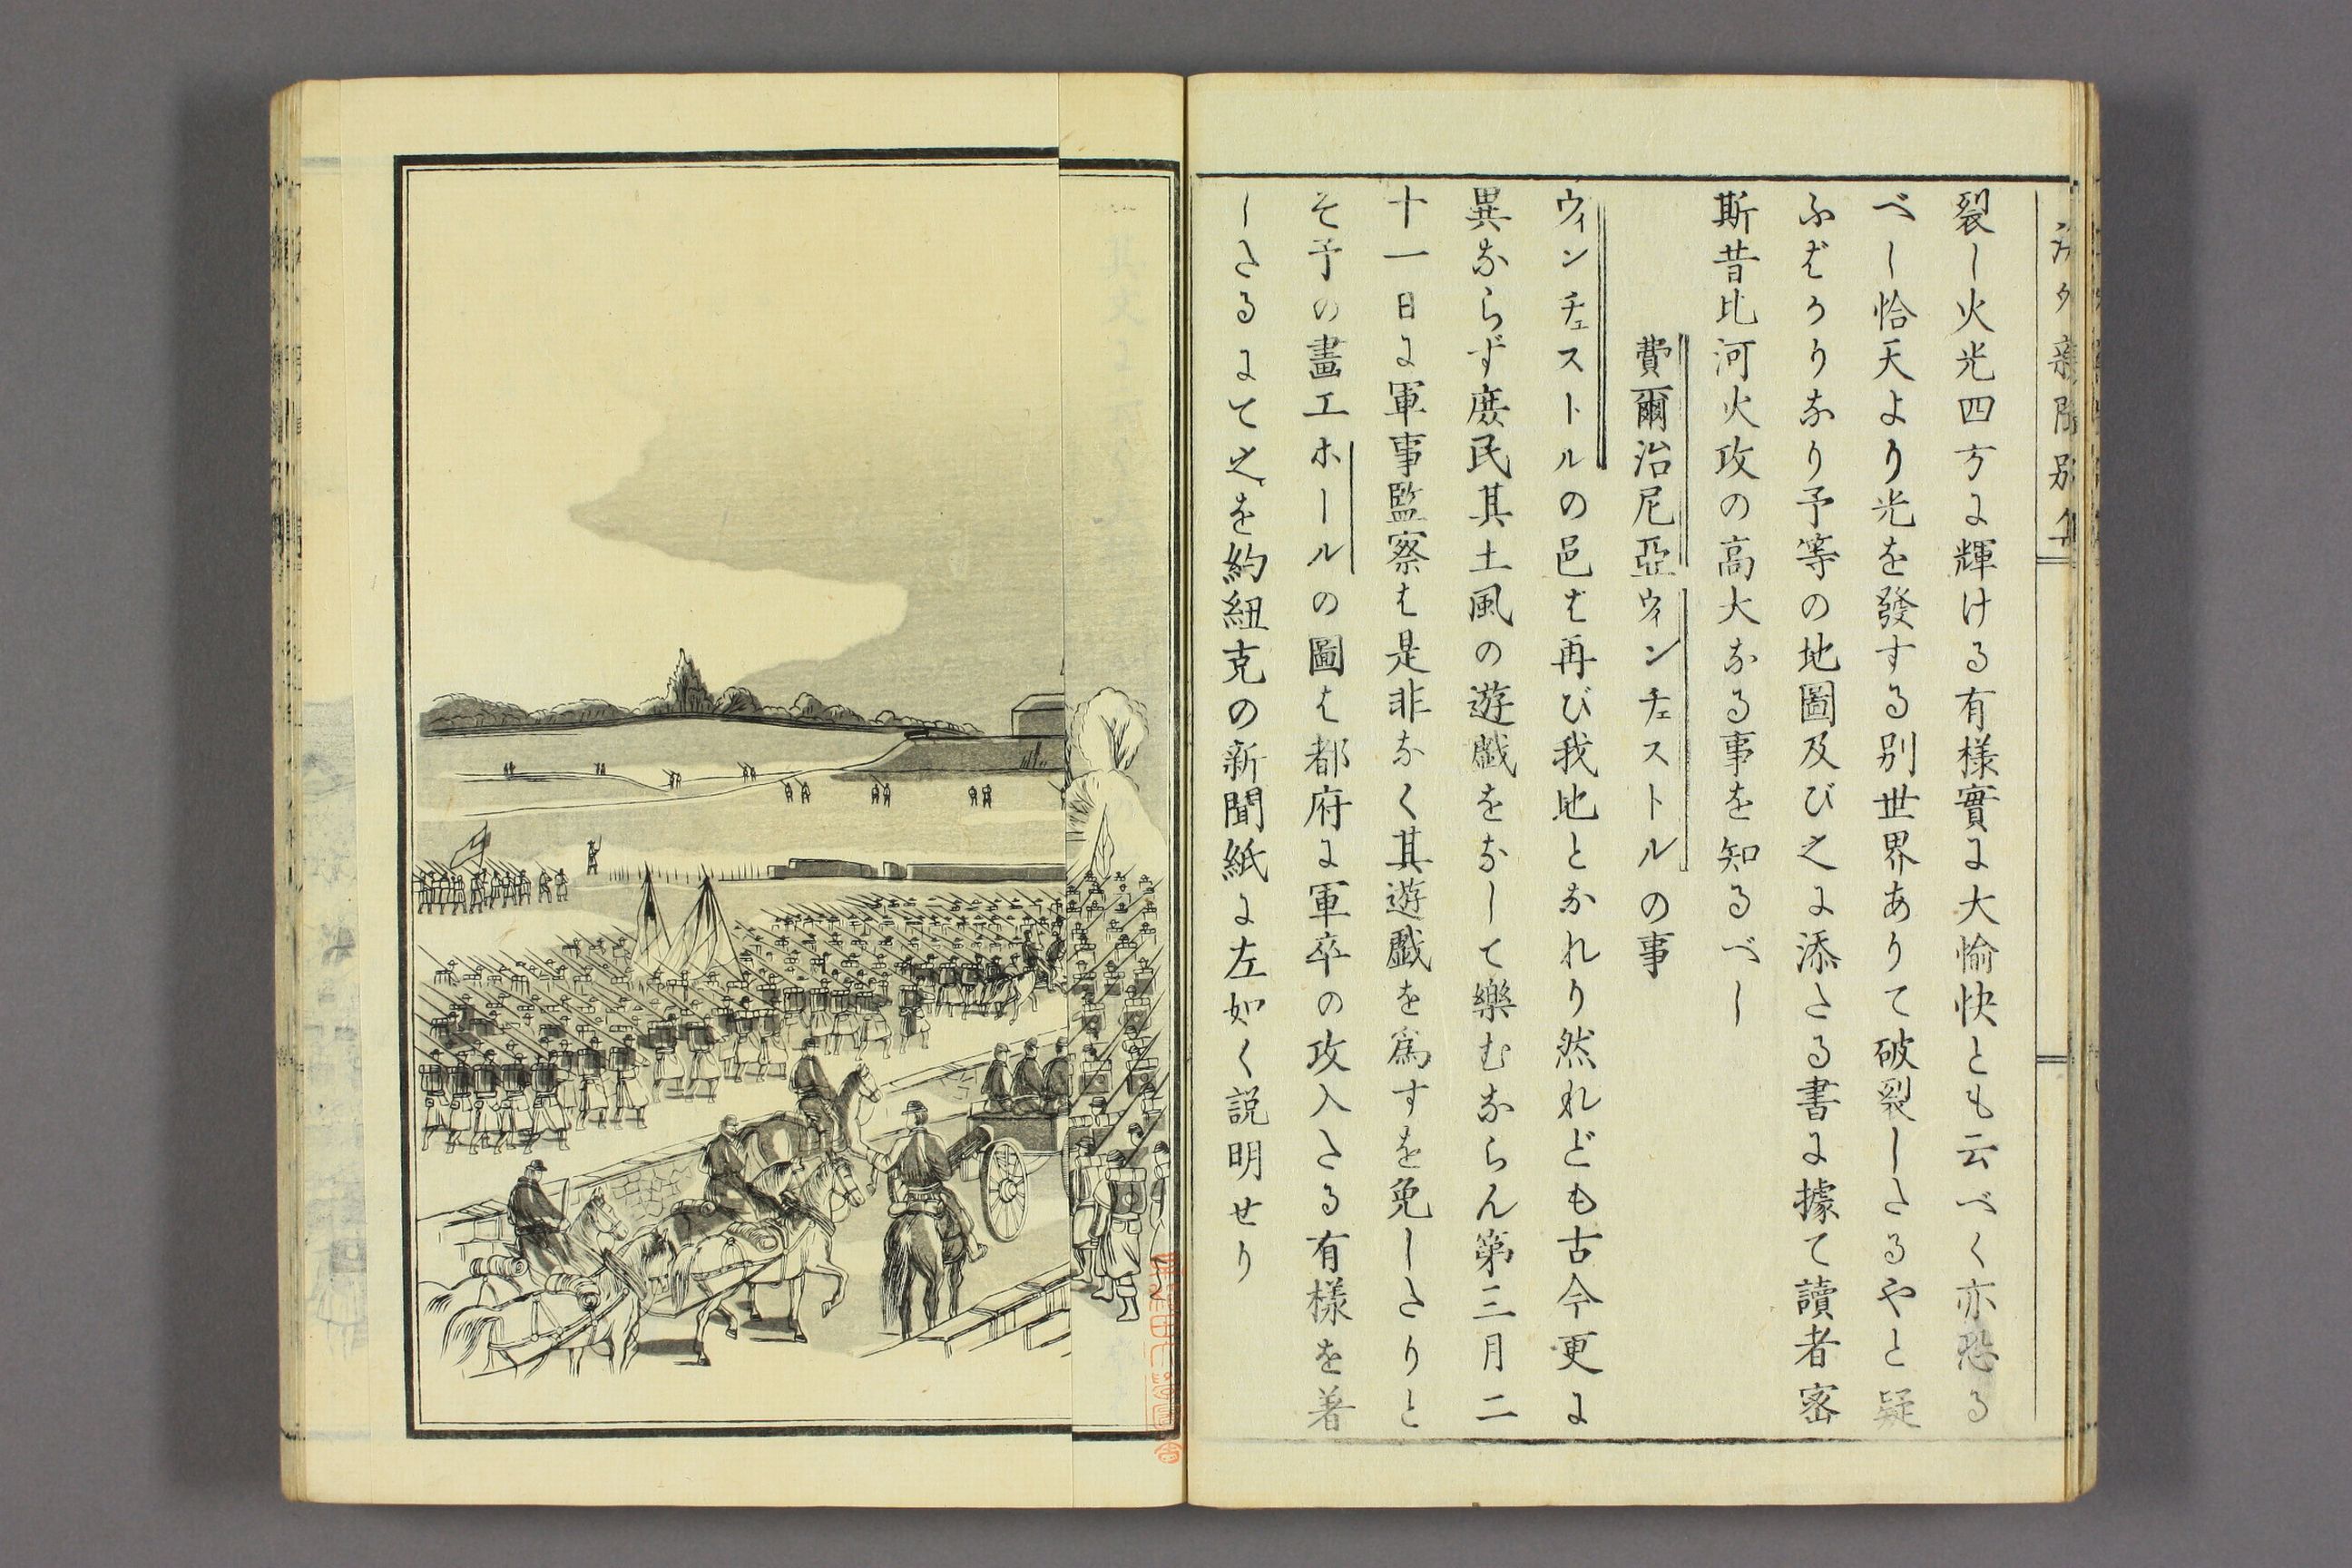 裂し火光四方に輝ける有様實に大愉快とも云べく亦恐る
べし恰天より光を發する別世界ありて破裂したるやと疑
ふばかりなり予等の地圖及び之に添たる書に據て讀者密
斯昔比河火攻の高大なる事を知るべし
費爾治尼亞ウィンチェストルの事
ウィンチェストルの邑は再び我地となれり然れども古今更に
異ならず庻民其土風の遊戯をなして樂むならん第三月二
十一日に軍事監察は是非なく其遊戯を爲すを免したりと
そ予の畫工ホールの圖は都府に軍卒の攻入たる有様を著
したるにて之を約紐克の新聞紙に左如く説明せり